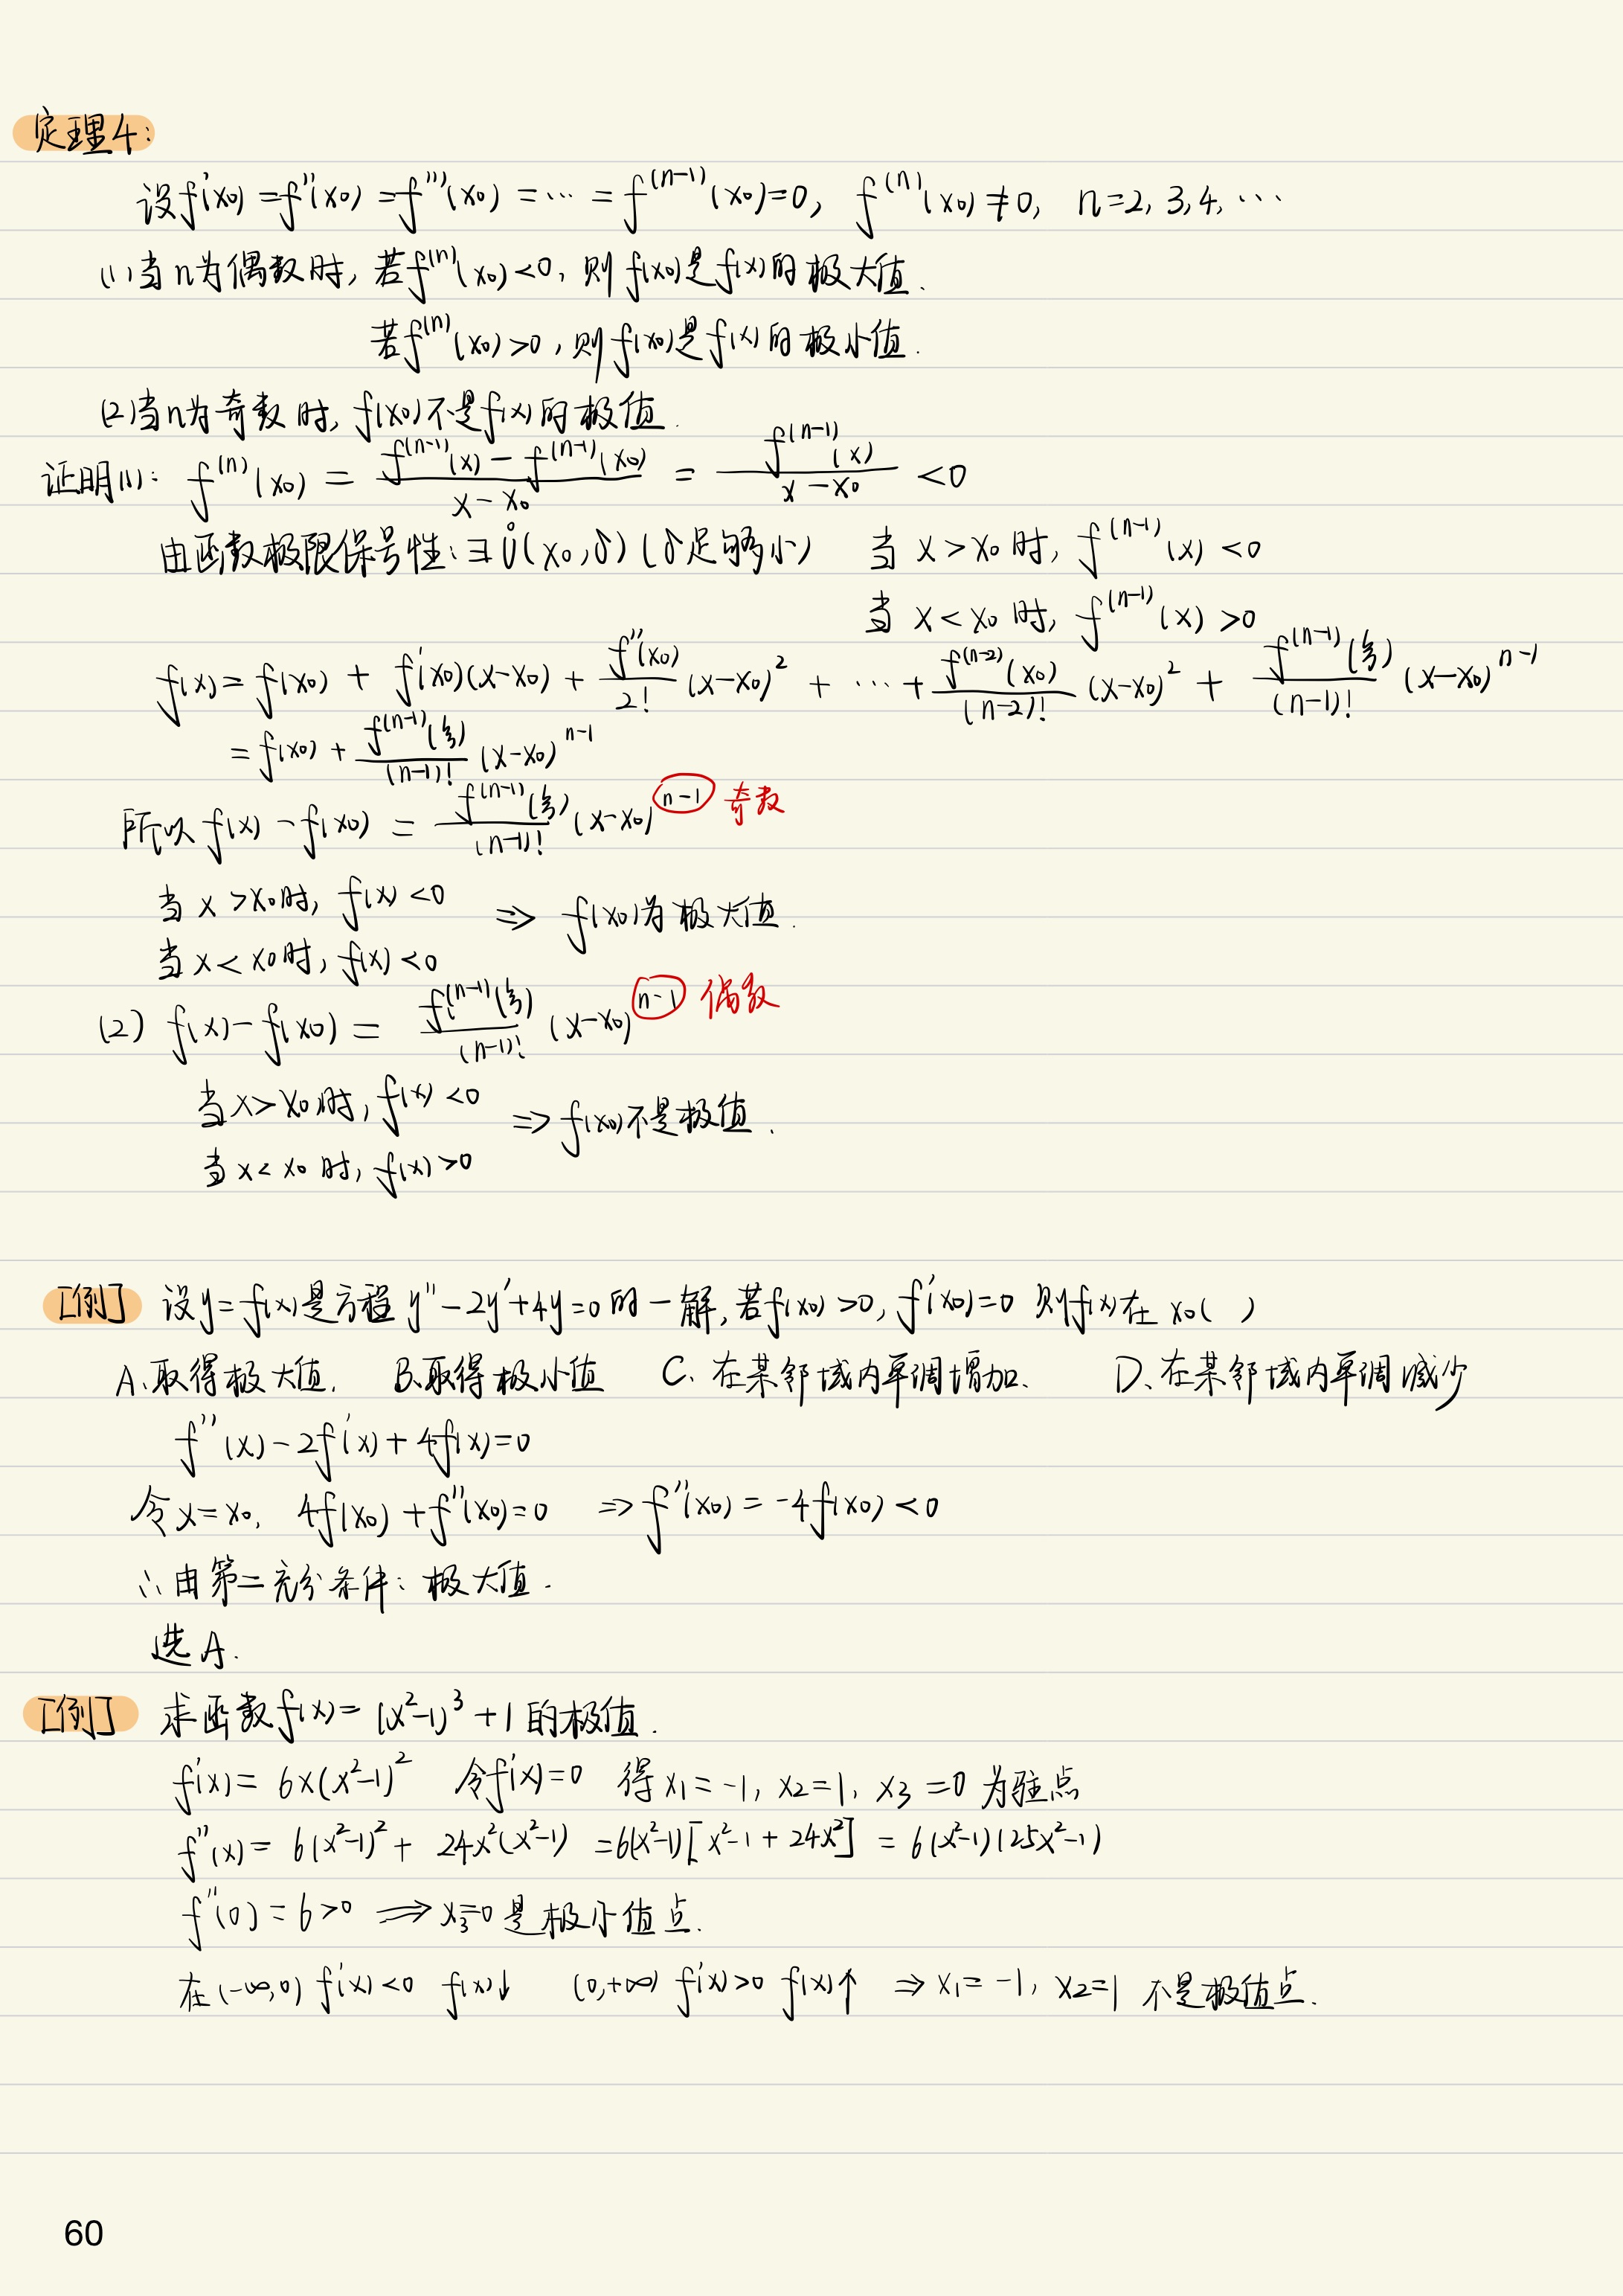 定理4:
设f'(x₀)=f''(x₀)=f'''(x₀)=⋯=f⁽ⁿ⁻¹⁾(x₀)=0, f⁽ⁿ⁾(x₀)≠0, n=2,3,4,⋯
(1)当n为偶数时,若f⁽ⁿ⁾(x₀)<0,则f(x₀)是f(x)的极大值.
若f⁽ⁿ⁾(x₀)>0,则f(x₀)是f(x)的极小值.
(2)当n为奇数时,f(x₀)不是f(x)的极值.
证明(1): f⁽ⁿ⁾(x₀) = (f⁽ⁿ⁻¹⁾(x)-f⁽ⁿ⁻¹⁾(x₀))/(x-x₀) = f⁽ⁿ⁻¹⁾(x)/(x-x₀) <0
由函数极限保号性:∃Ů(x₀,δ)(δ足够小) 当x>x₀时,f⁽ⁿ⁻¹⁾(x)<0
当x<x₀时,f⁽ⁿ⁻¹⁾(x)>0
f(x)=f(x₀)+f'(x₀)(x-x₀)+f''(x₀)/2!(x-x₀)²+⋯+f⁽ⁿ⁻²⁾(x₀)/(n-2)!(x-x₀)²+f⁽ⁿ⁻¹⁾(ξ)/(n-1)!(x-x₀)ⁿ⁻¹
=f(x₀)+f⁽ⁿ⁻¹⁾(ξ)/(n-1)!(x-x₀)ⁿ⁻¹
所以f(x)-f(x₀)=f⁽ⁿ⁻¹⁾(ξ)/(n-1)!(x-x₀)ⁿ⁻¹ 奇数
当x>x₀时,f(x)<0 ⇒ f(x₀)为极大值.
当x<x₀时,f(x)<0
(2) f(x)-f(x₀)=f⁽ⁿ⁻¹⁾(ξ)/(n-1)!(x-x₀)ⁿ⁻¹ 偶数
当x>x₀时,f(x)<0 ⇒f(x₀)不是极值.
当x<x₀时,f(x)>0
[例] 设y=f(x)是方程y''-2y'+4y=0的一解,若f(x₀)>0,f'(x₀)=0 则f(x)在x₀( )
A、取得极大值. B、取得极小值 C、在某邻域内单调增加. D、在某邻域内单调减少
f''(x)-2f'(x)+4f(x)=0
令x=x₀, 4f(x₀)+f''(x₀)=0 ⇒f''(x₀)=-4f(x₀)<0
∴由第二充分条件:极大值.
选A.
[例] 求函数f(x)=(x²-1)³+1的极值.
f'(x)=6x(x²-1)² 令f'(x)=0 得x₁=-1,x₂=1,x₃=0为驻点
f''(x)=6(x²-1)²+24x²(x²-1)=6(x²-1)[x²-1+24x²]=6(x²-1)(25x²-1)
f''(0)=6>0 ⇒x₃=0是极小值点.
在(-∞,0) f'(x)<0 f(x)↓ (0,+∞) f'(x)>0 f(x)↑ ⇒x₁=-1,x₂=1不是极值点.
60